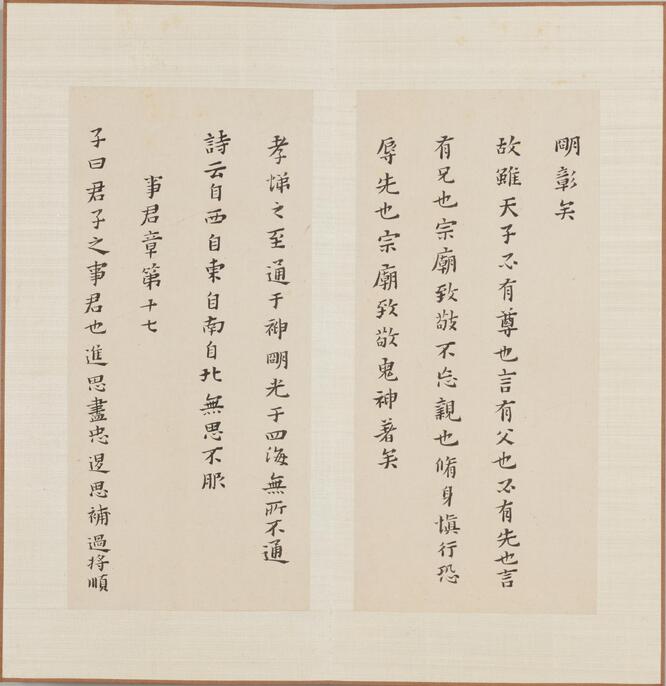 明彰矣
故雖天子必有尊也言有父也必有先也言
有兄也宗廟致敬不忘親也脩身慎行恐
辱先也宗廟致敬鬼神著矣
孝悌之至通于神明光于四海無所不通
詩云自西自東自南自北無思不服
事君章第十七
子曰君子之事君也進思盡忠退思補過將順